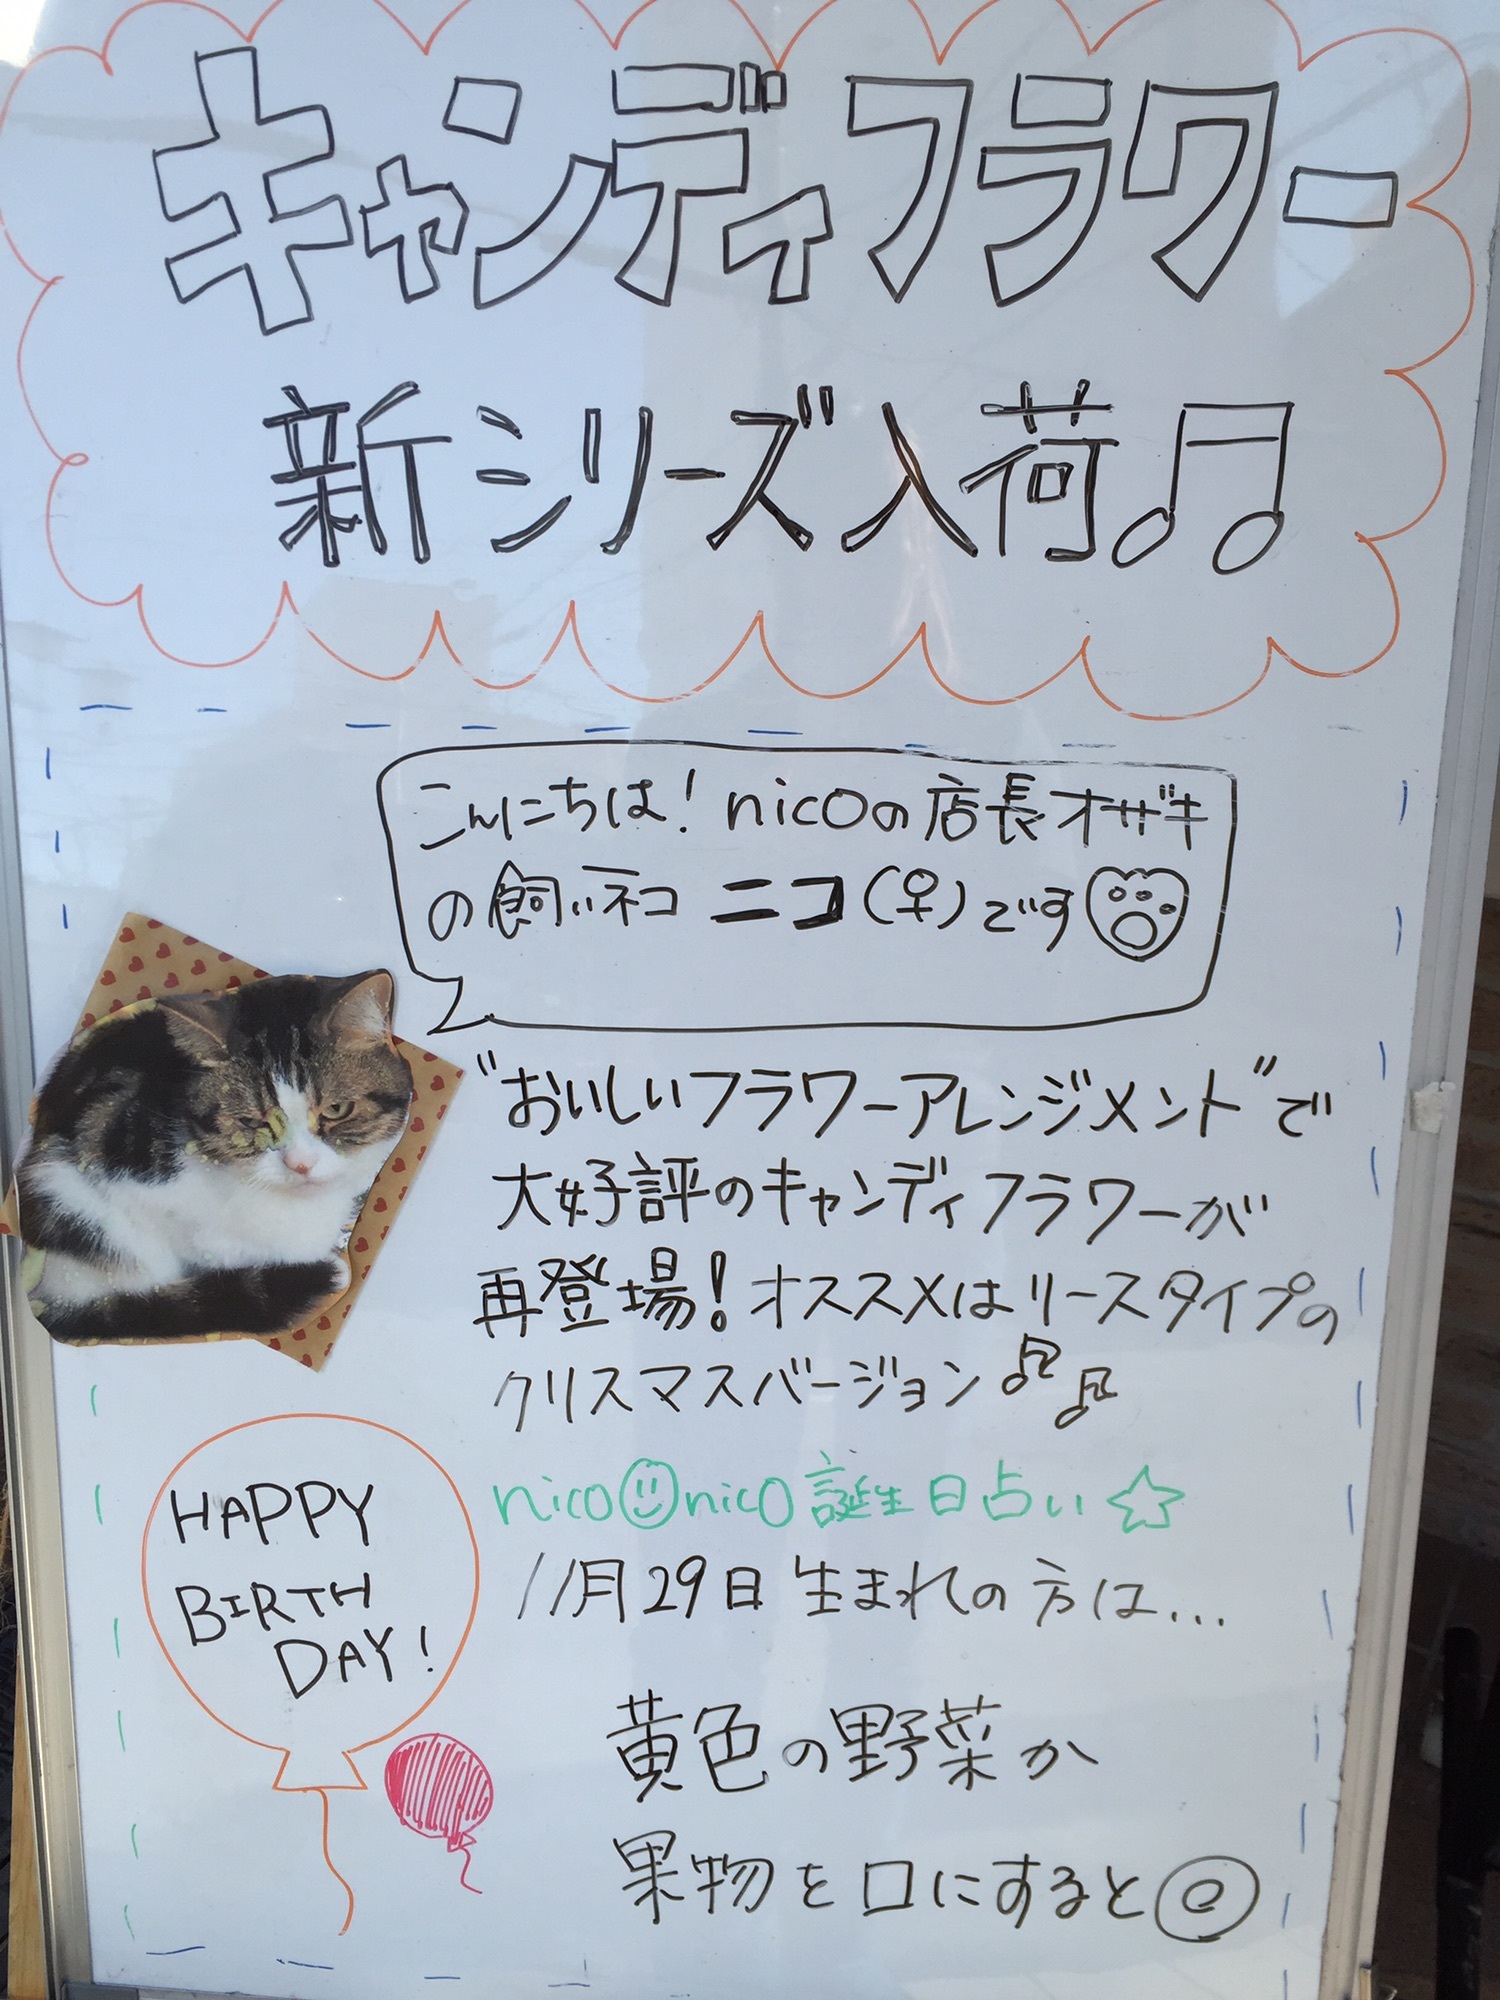 キャンディフラワー
新シリーズ入荷♫
こんにちは! nicoの店長オザキ
の飼いネコ ニコ(♀)です
"おいしいフラワーアレンジメント"で
大好評のキャンディフラワーが
再登場!オススメはリースタイプの
クリスマスバージョン♫♫
nico☺nico誕生日占い☆
11月29日生まれの方は...
黄色の野菜か
果物を口にすると◎
HAPPY
BIRTH
DAY!